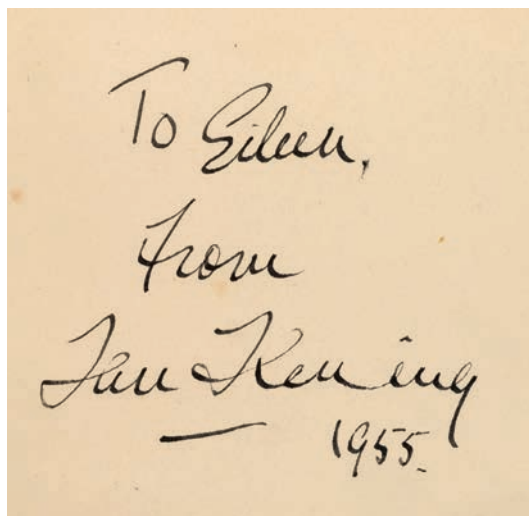 To Eileen,
From
Ian Fleming
1955.